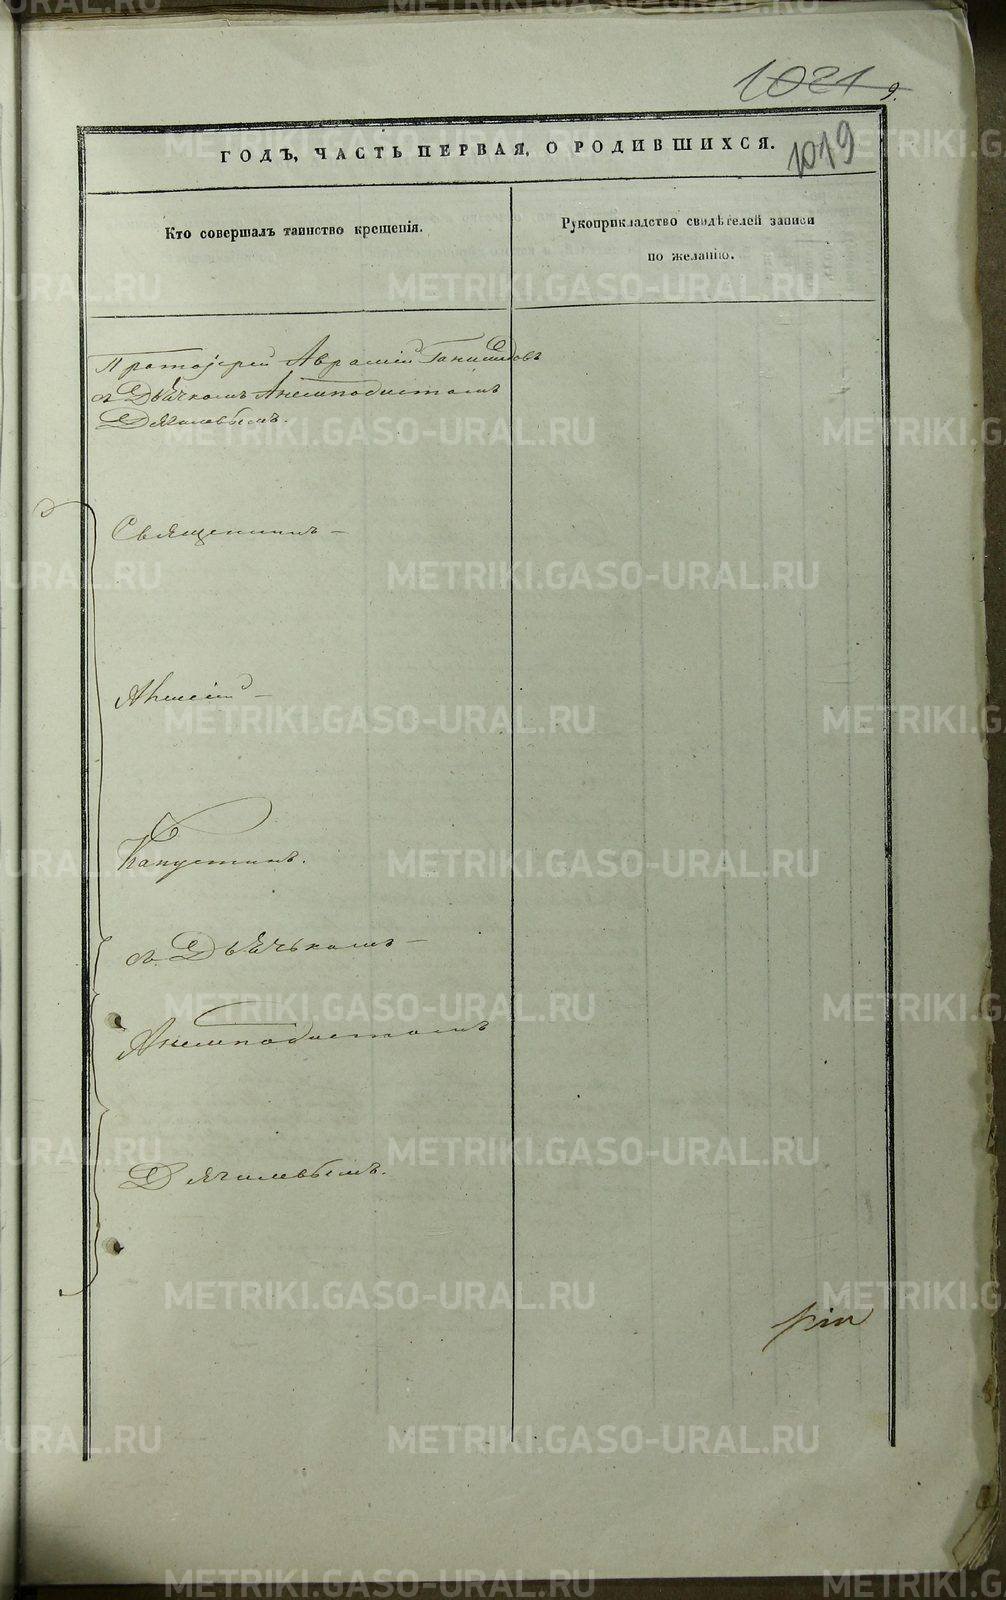 1021 9.
1019
ГОДЪ, ЧАСТЬ ПЕРВАЯ, О РОДИВШИХСЯ.
Кто совершалъ таинство крещенія.
Рукоприкладство свидѣтелей записи
по желанію.
Протоіерей Аврамій
съ Дьячкомъ Анемподистомъ
Дягилевымъ.
Священникъ –
Алексій –
Капустинъ.
съ Дьячькомъ –
Анемподистомъ
Дягилевымъ.
METRIKI.GASO-URAL.RU